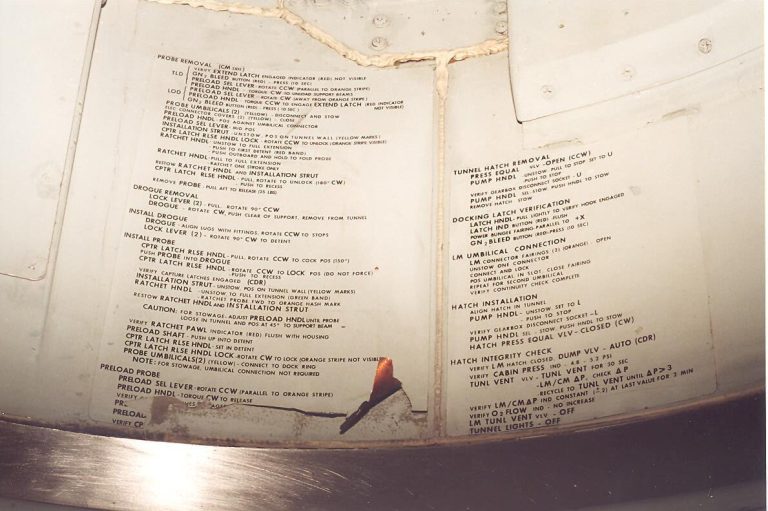 PROBE REMOVAL (CM SIDE)
VERIFY EXTEND LATCH ENGAGED INDICATOR (RED) NOT VISIBLE
TLD GN2 BLEED BUTTON (RED) - PRESS (10 SEC)
PRELOAD SEL LEVER - ROTATE CCW (PARALLEL TO ORANGE STRIPE)
PRELOAD HNDL - TORQUE CW TO UNLOAD SUPPORT BEAMS
PRELOAD SEL LEVER - ROTATE CW (AWAY FROM ORANGE STRIPE)
LOD PRELOAD HNDL - TORQUE CCW TO ENGAGE EXTEND LATCH (RED INDICATOR NOT VISIBLE)
GN2 BLEED BUTTON (RED) - PRESS (10 SEC)
PROBE UMBILICALS (2) (YELLOW) - DISCONNECT AND STOW
ELEC CONNECTOR COVERS (2) (YELLOW) - CLOSE
PRELOAD HNDL - POS AGAINST UMBILICAL CONNECTOR
PRELOAD SEL LEVER - MID POS
INSTALLATION STRUT - UNSTOW, POS ON TUNNEL WALL (YELLOW MARKS)
CPTR LATCH RLSE HNDL LOCK - ROTATE CCW TO UNLOCK (ORANGE STRIPE VISIBLE)
RATCHET HNDL - UNSTOW TO FULL EXTENSION
- PUSH TO FIRST DETENT (RED BAND)
- PUSH OUTBOARD AND HOLD TO FOLD PROBE
RATCHET HNDL - PULL TO FULL EXTENSION
- RATCHET ONE STROKE ONLY
RESTOW RATCHET HNDL AND INSTALLATION STRUT
CPTR LATCH RLSE HNDL - PULL, ROTATE TO UNLOCK (180° CW)
- PUSH TO RECESS
REMOVE PROBE - PULL AFT TO RELEASE (25 LBS)
DROGUE REMOVAL
LOCK LEVER (2) - PULL, ROTATE 90° CCW
DROGUE - ROTATE CW, PUSH CLEAR OF SUPPORT, REMOVE FROM TUNNEL
INSTALL DROGUE
DROGUE - ALIGN LUGS WITH FITTINGS, ROTATE CCW TO STOPS
LOCK LEVER (2) - ROTATE 90° CW TO DETENT
INSTALL PROBE
CPTR LATCH RLSE HNDL - PULL, ROTATE CCW TO COCK POS (150°)
PUSH PROBE INTO DROGUE
CPTR LATCH RLSE HNDL - ROTATE CCW TO LOCK POS (DO NOT FORCE)
- PUSH TO RECESS
VERIFY CAPTURE LATCHES ENGAGED (CDR)
INSTALLATION STRUT - UNSTOW, POS ON TUNNEL WALL (YELLOW MARKS)
RATCHET HNDL - UNSTOW TO FULL EXTENSION (GREEN BAND)
- RATCHET PROBE FWD TO ORANGE HASH MARK
RESTOW RATCHET HNDL AND INSTALLATION STRUT
CAUTION: FOR STOWAGE: ADJUST PRELOAD HNDL UNTIL PROBE
LOOSE IN TUNNEL AND POS AT 45° TO SUPPORT BEAM
VERIFY RATCHET PAWL INDICATOR (RED) FLUSH WITH HOUSING
PRELOAD SHAFT - PUSH UP INTO DETENT
CPTR LATCH RLSE HNDL - SET IN DETENT
CPTR LATCH RLSE HNDL LOCK - ROTATE CW TO LOCK (ORANGE STRIPE NOT VISIBLE)
PROBE UMBILICALS (2) (YELLOW) - CONNECT TO DOCK RING
NOTE: FOR STOWAGE, UMBILICAL CONNECTION NOT REQUIRED
PRELOAD PROBE
PRELOAD SEL LEVER - ROTATE CCW (PARALLEL TO ORANGE STRIPE)
PRELOAD HNDL - TORQUE CW TO RELEASE
VERIFY
PRELOAD
VERIFY CP
TUNNEL HATCH REMOVAL
PRESS EQUAL VLV - OPEN (CCW)
PUMP HNDL - UNSTOW, PULL TO STOP, SET TO U
- PUSH TO STOP
VERIFY GEARBOX DISCONNECT SOCKET - U
PUMP HNDL SEL - STOW, PUSH HNDL TO STOW
REMOVE HATCH - STOW
DOCKING LATCH VERIFICATION
LATCH HNDL - PULL LIGHTLY TO VERIFY HOOK ENGAGED
LATCH IND BUTTON (RED) FLUSH
POWER BUNGEE FAIRING PARALLEL TO +X
GN2 BLEED BUTTON (RED) - PRESS (10 SEC)
LM UMBILICAL CONNECTION
LM CONNECTOR FAIRINGS (2) (ORANGE) - OPEN
UNSTOW ONE CONNECTOR
CONNECT AND LOCK
POS UMBILICAL IN SLOT, CLOSE FAIRING
REPEAT FOR SECOND UMBILICAL
VERIFY CONTINUITY CHECK COMPLETE
HATCH INSTALLATION
ALIGN HATCH IN TUNNEL
PUMP HNDL - UNSTOW, SET TO L
- PUSH TO STOP
VERIFY GEARBOX DISCONNECT SOCKET - L
PUMP HNDL SEL - STOW, PUSH HNDL TO STOW
HATCH PRESS EQUAL VLV - CLOSED (CW)
HATCH INTEGRITY CHECK
VERIFY LM HATCH CLOSED, DUMP VLV - AUTO (CDR)
VERIFY CABIN PRESS IND AB - 5.3 PSI
TUNL VENT VLV - TUNL VENT FOR 50 SEC
- LM/CM ΔP, CHECK ΔP
- RECYCLE TO TUNL VENT UNTIL ΔP > 3
VERIFY LM/CM ΔP IND CONSTANT (±.2) AT LAST VALUE FOR 3 MIN
VERIFY O2 FLOW IND - NO INCREASE
LM TUNL VENT VLV - OFF
TUNNEL LIGHTS - OFF